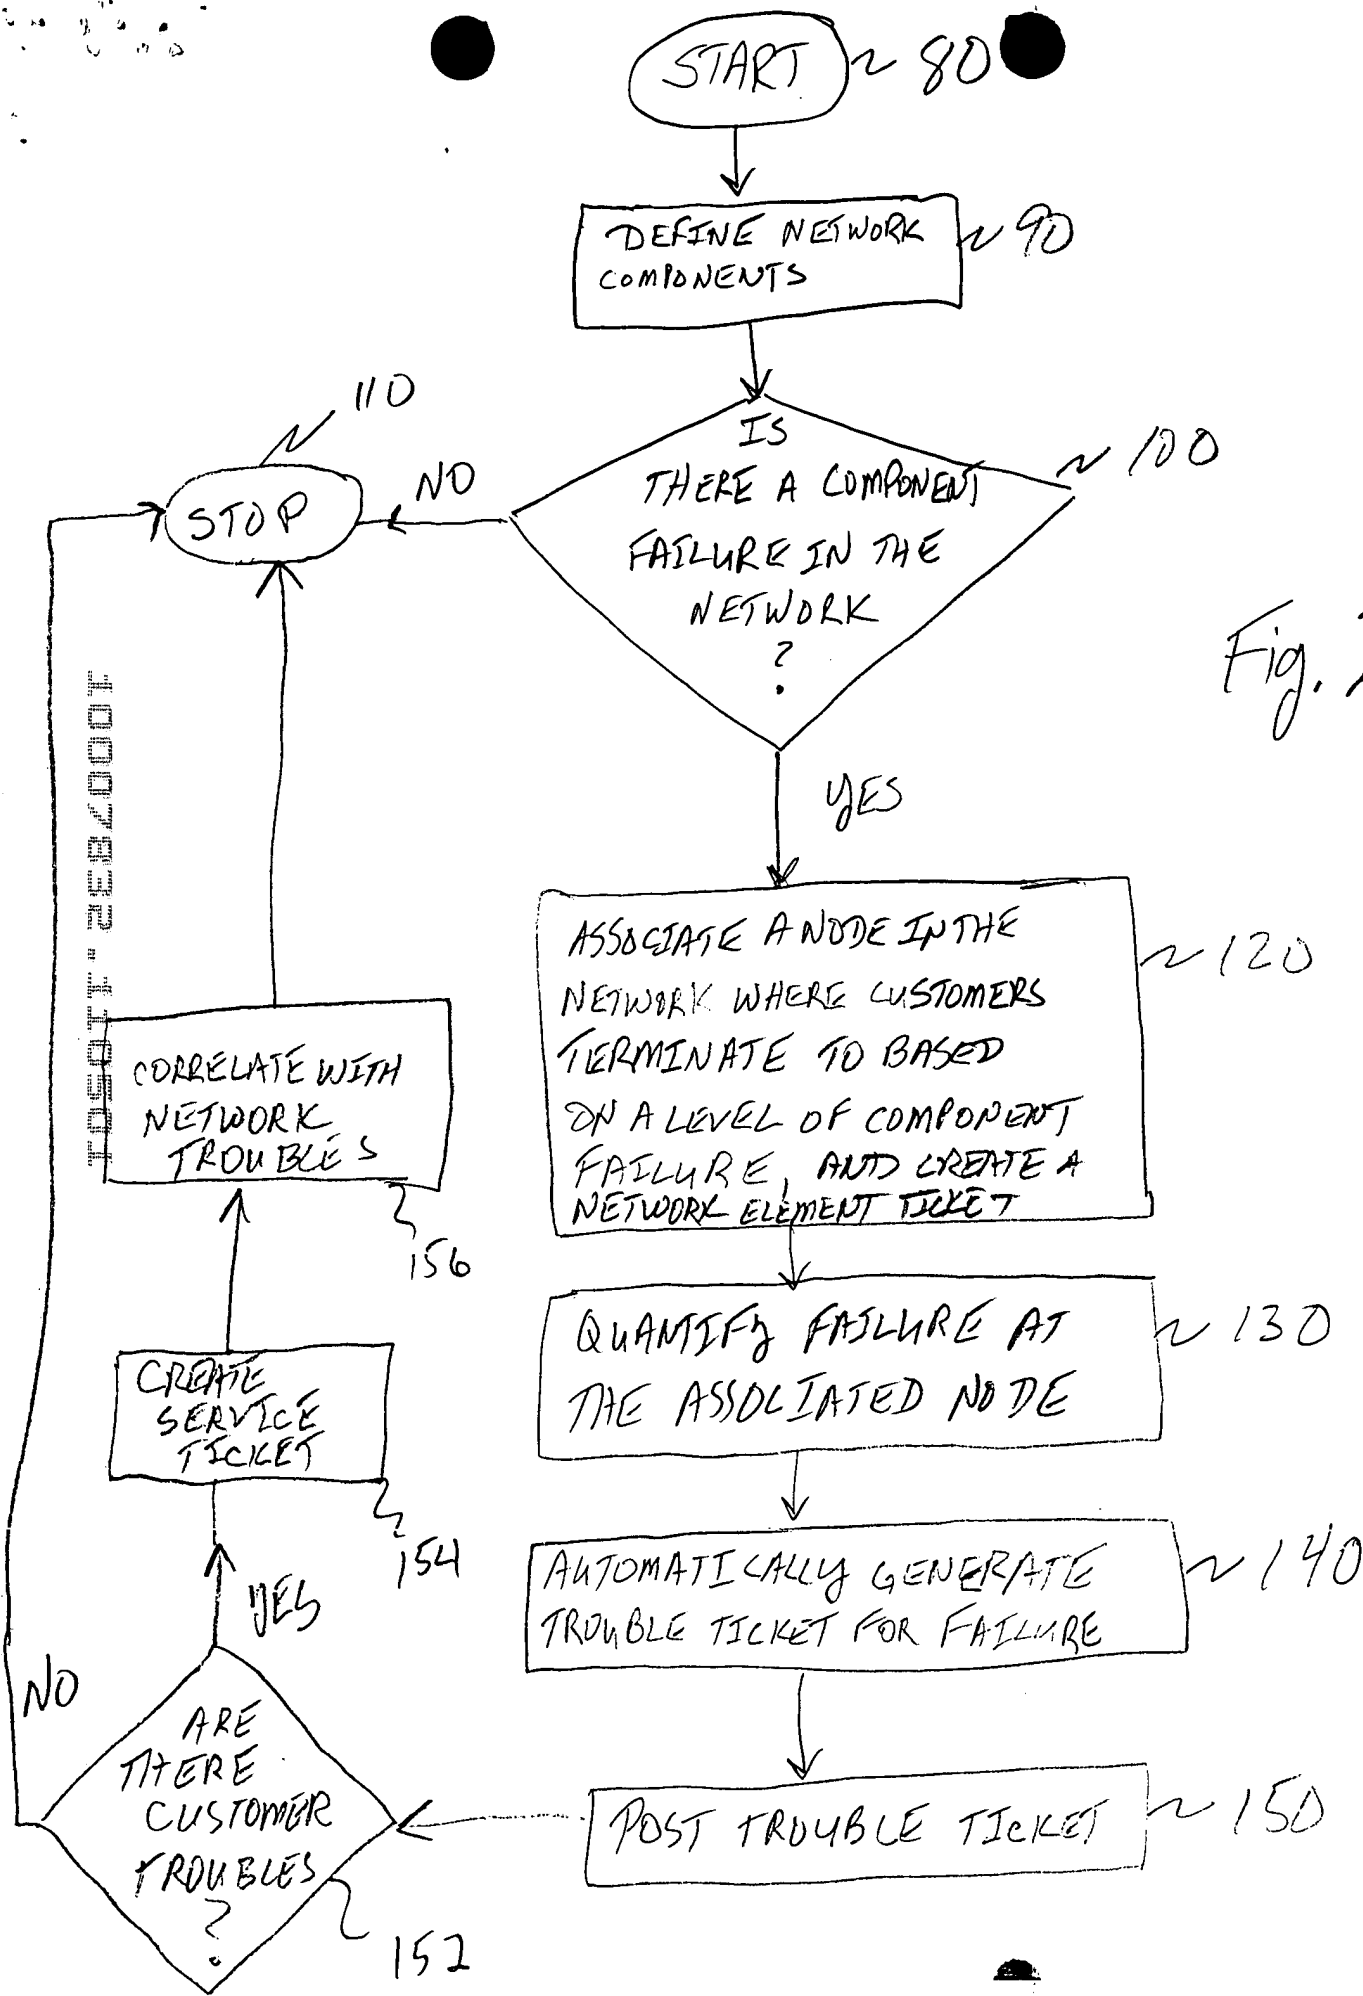 START
80
DEFINE NETWORK
COMPONENTS
90
IS
THERE A COMPONENT
FAILURE IN THE
NETWORK
?
100
NO
110
STOP
Fig.
YES
ASSOCIATE A NODE IN THE
NETWORK WHERE CUSTOMERS
TERMINATE TO BASED
ON A LEVEL OF COMPONENT
FAILURE, AND CREATE A
NETWORK ELEMENT TICKET
120
QUANTIFY FAILURE AT
THE ASSOCIATED NODE
130
AUTOMATICALLY GENERATE
TROUBLE TICKET FOR FAILURE
140
POST TROUBLE TICKET
150
ARE
THERE
CUSTOMER
TROUBLES
?
152
NO
YES
CREATE
SERVICE
TICKET
154
CORRELATE WITH
NETWORK
TROUBLES
156
10007832.110501